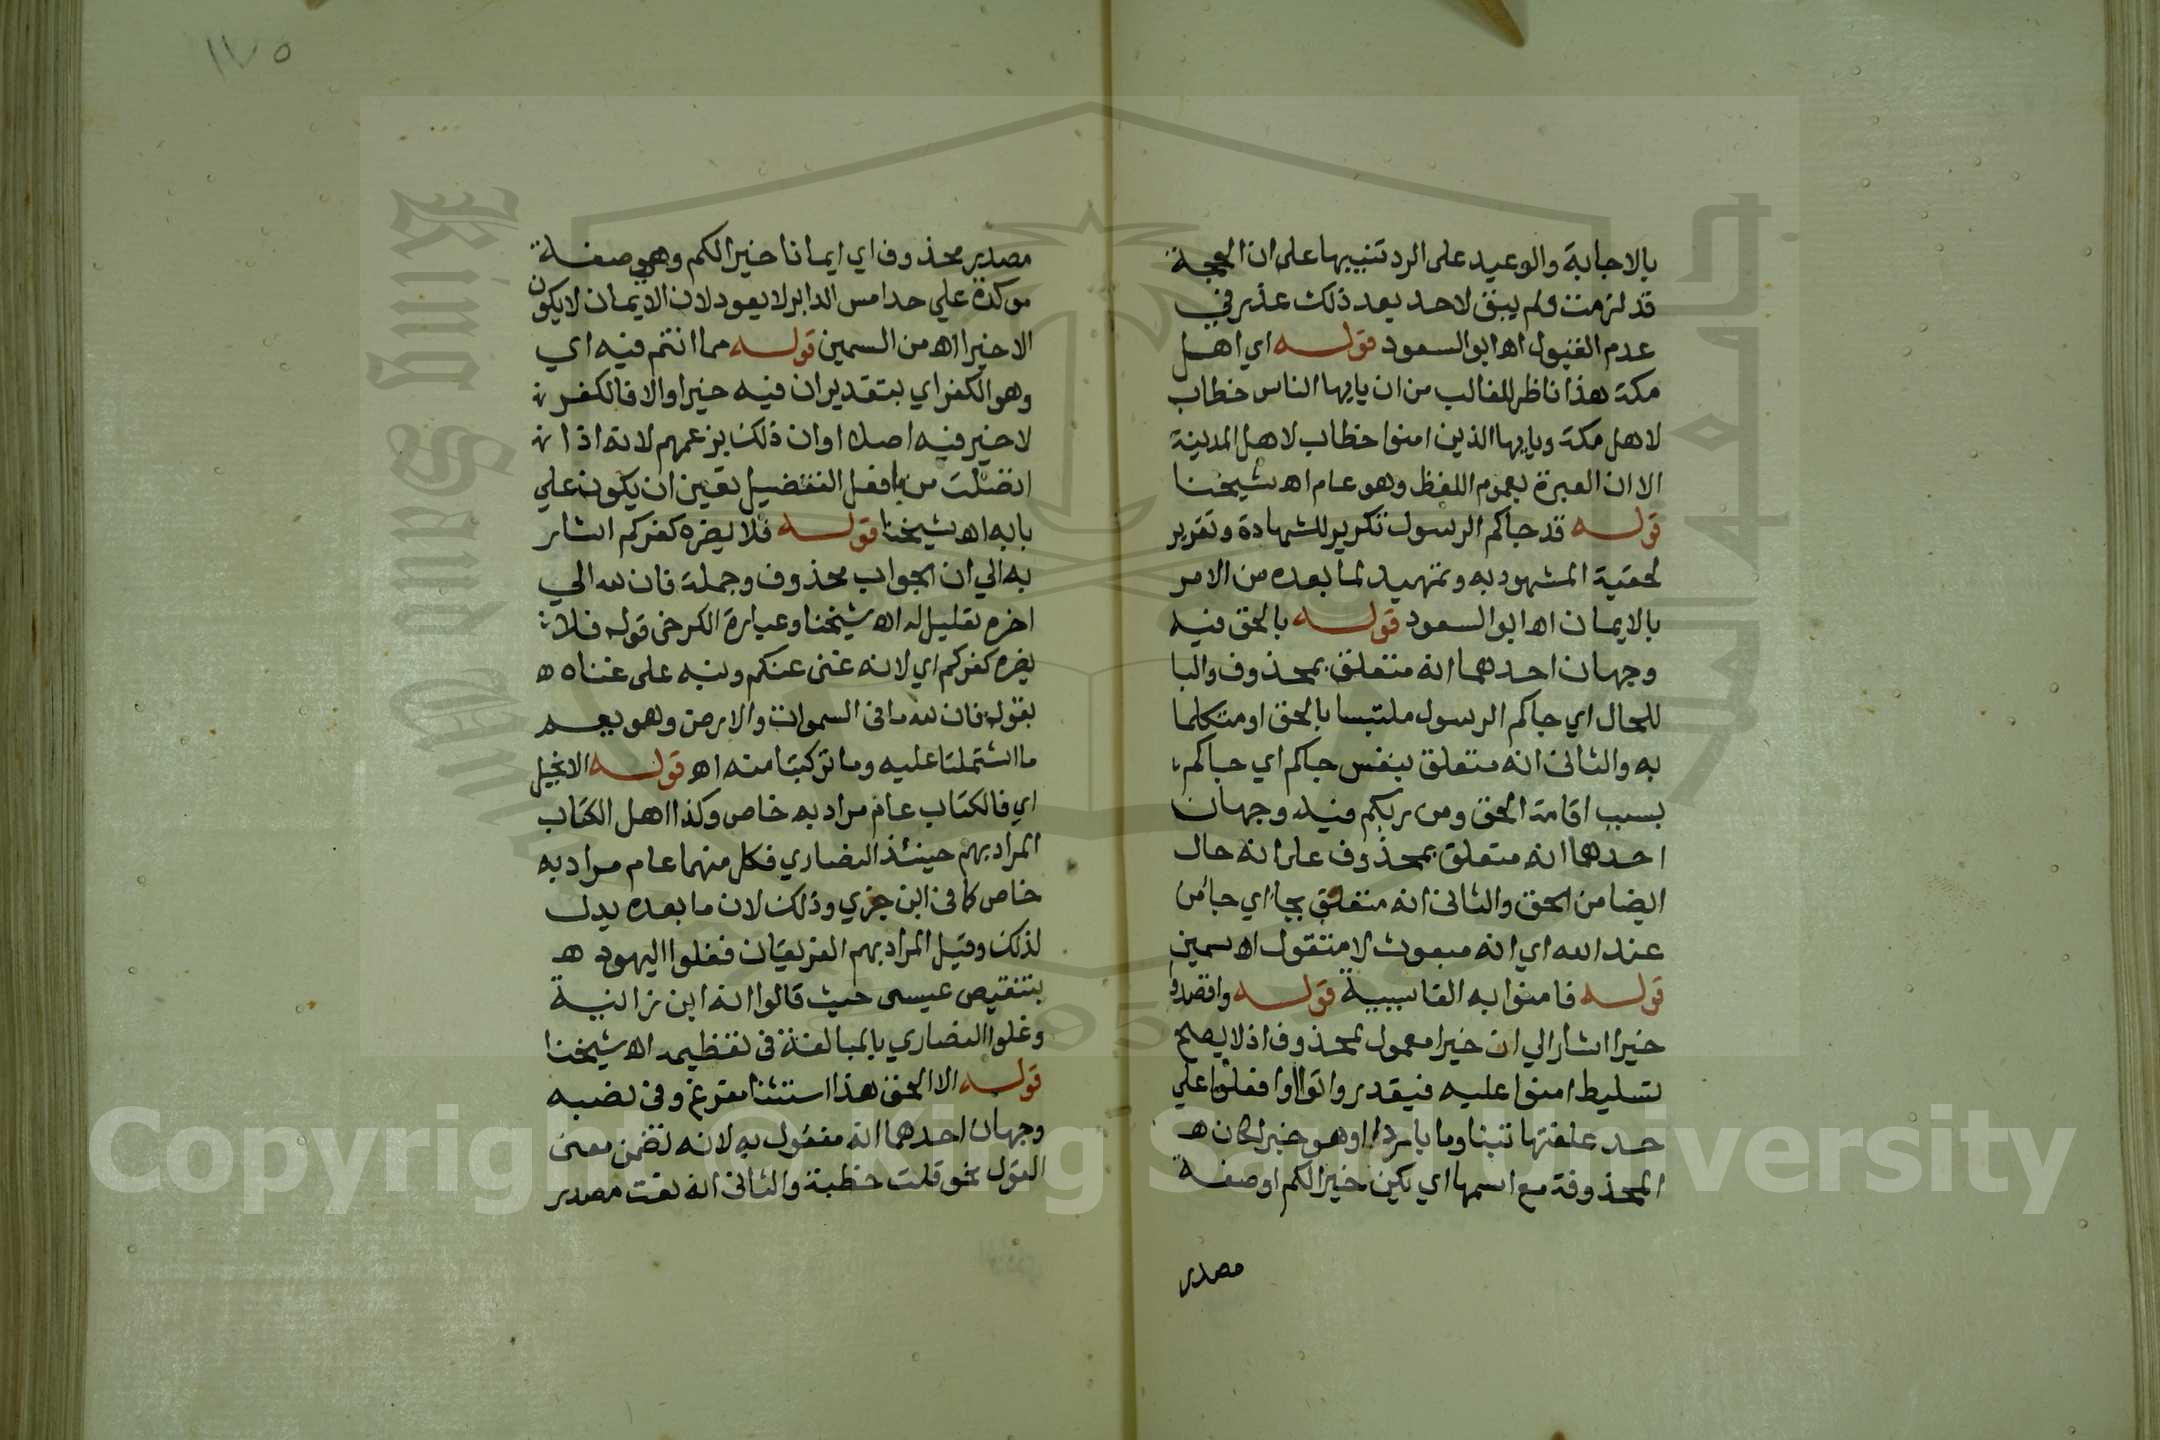 بالاجابة والوعيد على الرد تنبيها على ان الحجة
قد لزمت ولم يبق لاحد بعد ذلك عذر في
عدم القبول اه ابو السعود قوله اي اهل
مكة هذا ناظر للغالب من ان يايها الناس خطاب
لاهل مكة ويايها الذين امنوا خطاب لاهل المدينة
الا ان العبرة بعموم اللفظ وهو عام اه شيخنا
قوله قد جاكم الرسول تكرير للشهادة وتقرير
لحقية المشهود به وتمهيد لما بعده من الامر
بالايمان اه ابو السعود قوله بالحق فيه
وجهان احدهما انه متعلق بمحذوف والبا
للحال اي جاكم الرسول ملتبسا بالحق او متكلما
به والثاني انه متعلق بنفس جاكم اي جاكم
بسبب اقامة الحق ومن ربكم فيه وجهان
احدهما انه متعلق بمحذوف على انه حال
ايضا من الحق والثاني انه متعلق بجا اي جا من
عند الله اي انه مبعوث لا متقول اه سمين
قوله فامنوا به الفا سببية قوله واقصدوا
خيرا اشار الي ان خيرا معمول لمحذوف اذ لا يصلح
تسليط امنوا عليه فيقدر واتوا او افعلوا علي
حد علفتها تبنا وما باردا او هو خبر لكان ه
المحذوفة مع اسمها اي يكن خيرا لكم او صفة
مصدر
١٧٥
مصدر محذوف اي ايمانا خيرا لكم وهي صفة
موكدة علي حد امس الدابر لا يعود لان الايمان لا يكون
الا خيرا اه من السمين قوله مما انتم فيه اي
وهو الكفر اي بتقدير ان فيه خيرا والا فالكفر
لا خير فيه اصلا او ان ذلك بزعمهم لانه اذا
اتصلت من بافعل التفضيل تعين ان يكون علي
بابه اه شيخنا قوله فلا يضره كفركم اشار
به الي ان الجواب محذوف وجملة فان لله الي
اخره تعليل له اه شيخنا وعبارة الكرخي قوله فلا
يضره كفركم اي لانه غني عنكم ونبه على غناه ه
بقوله فان لله ما في السموات والارض وهو يعم
ما اشتملتا عليه وما تركبتا منه اه قوله الانجيل
اي فالكتاب عام مراد به خاص وكذا اهل الكتاب
المراد بهم حينئذ النصاري فكل منهما عام مراد به
خاص كما في ابن جزي وذلك لان ما بعده يدل
لذلك وقيل المراد بهم الفريقان فغلوا اليهود ه
بتنقيص عيسى حيث قالوا انه ابن زانية
وغلوا النصاري بالمبالغة في تعظيمه اه شيخنا
قوله الا الحق هذا استثنا مفرغ وفي نصبه
وجهان احدهما انه مفعول به لانه تضمن معنى
القول نحو قلت خطبة والثاني انه نعت مصدر
Copyright © King Saud University
King Saud University
جامعة الملك سعود